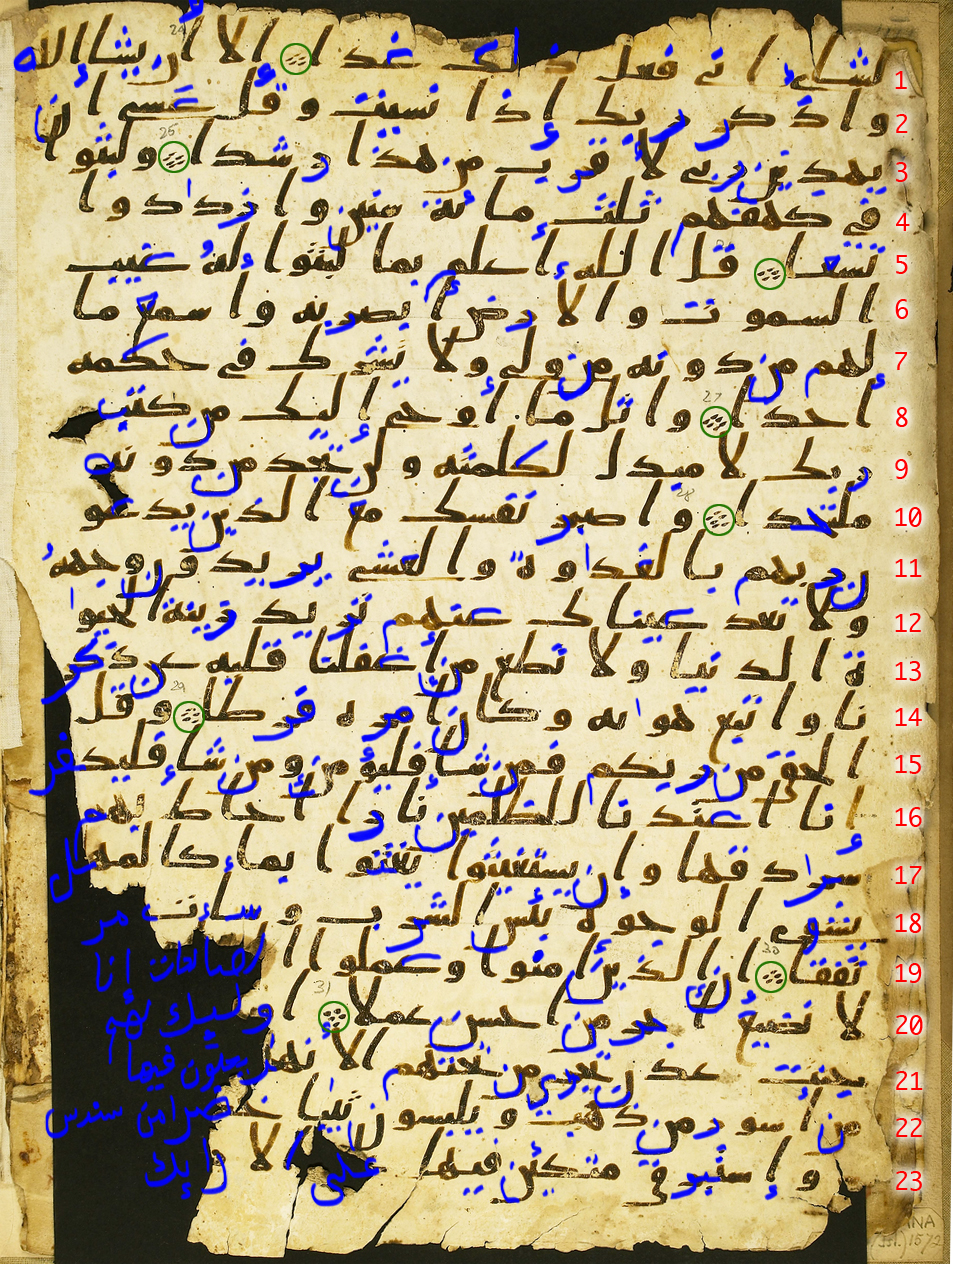 1 لشاىء انى فعل ذلك غدا الا ان يشا الله
2 واذكر ربك اذا نسيت وقل عسى ان
3 يهدين ربى لأقرب من هذا رشدا ولبثوا
4 فى كهفهم ثلث مائة سنين وازدادوا
5 تسعا قل الله أعلم بما لبثوا له غيب
6 السموت والأرض أبصر به واسمع ما
7 لهم من دونه من ولى ولا يشرك فى حكمه
8 أحدا واتل ما أوحى إليك من كتب
9 ربك لا مبدل لكلمته ولن تجد من دونه
10 ملتحدا واصبر نفسك مع الذين يدعو
11 ن ربهم بالغدوة والعشى يريدون وجهه
12 ولا تعد عيناك عنهم تريد زينة الحيو
13 ة الدنيا ولا تطع من أغفلنا قلبه عن ذكر
14 نا واتبع هوىه وكان أمره فرطا وقل
15 الحق من ربكم فمن شا فليؤمن ومن شا فليكفر
16 إنا أعتدنا للظلمين نارا أحاط بهم
17 سرادقها وإن يستغيثوا يغثوا بما كالمهل
18 يشوى الوجوه بئس الشرب وسات مر
19 تفقا إن الذين امنوا وعملوا الصالحات إنا
20 لا نضيع أجر من أحسن عملا اوليك لهم
21 جنت عدن تجرى من تحتهم الأنهر يحلون فيها
22 من أسور من ذهب ويلبسون ثيبا خضرا من سندس
23 وإستبرق متكين فيها على الارايك